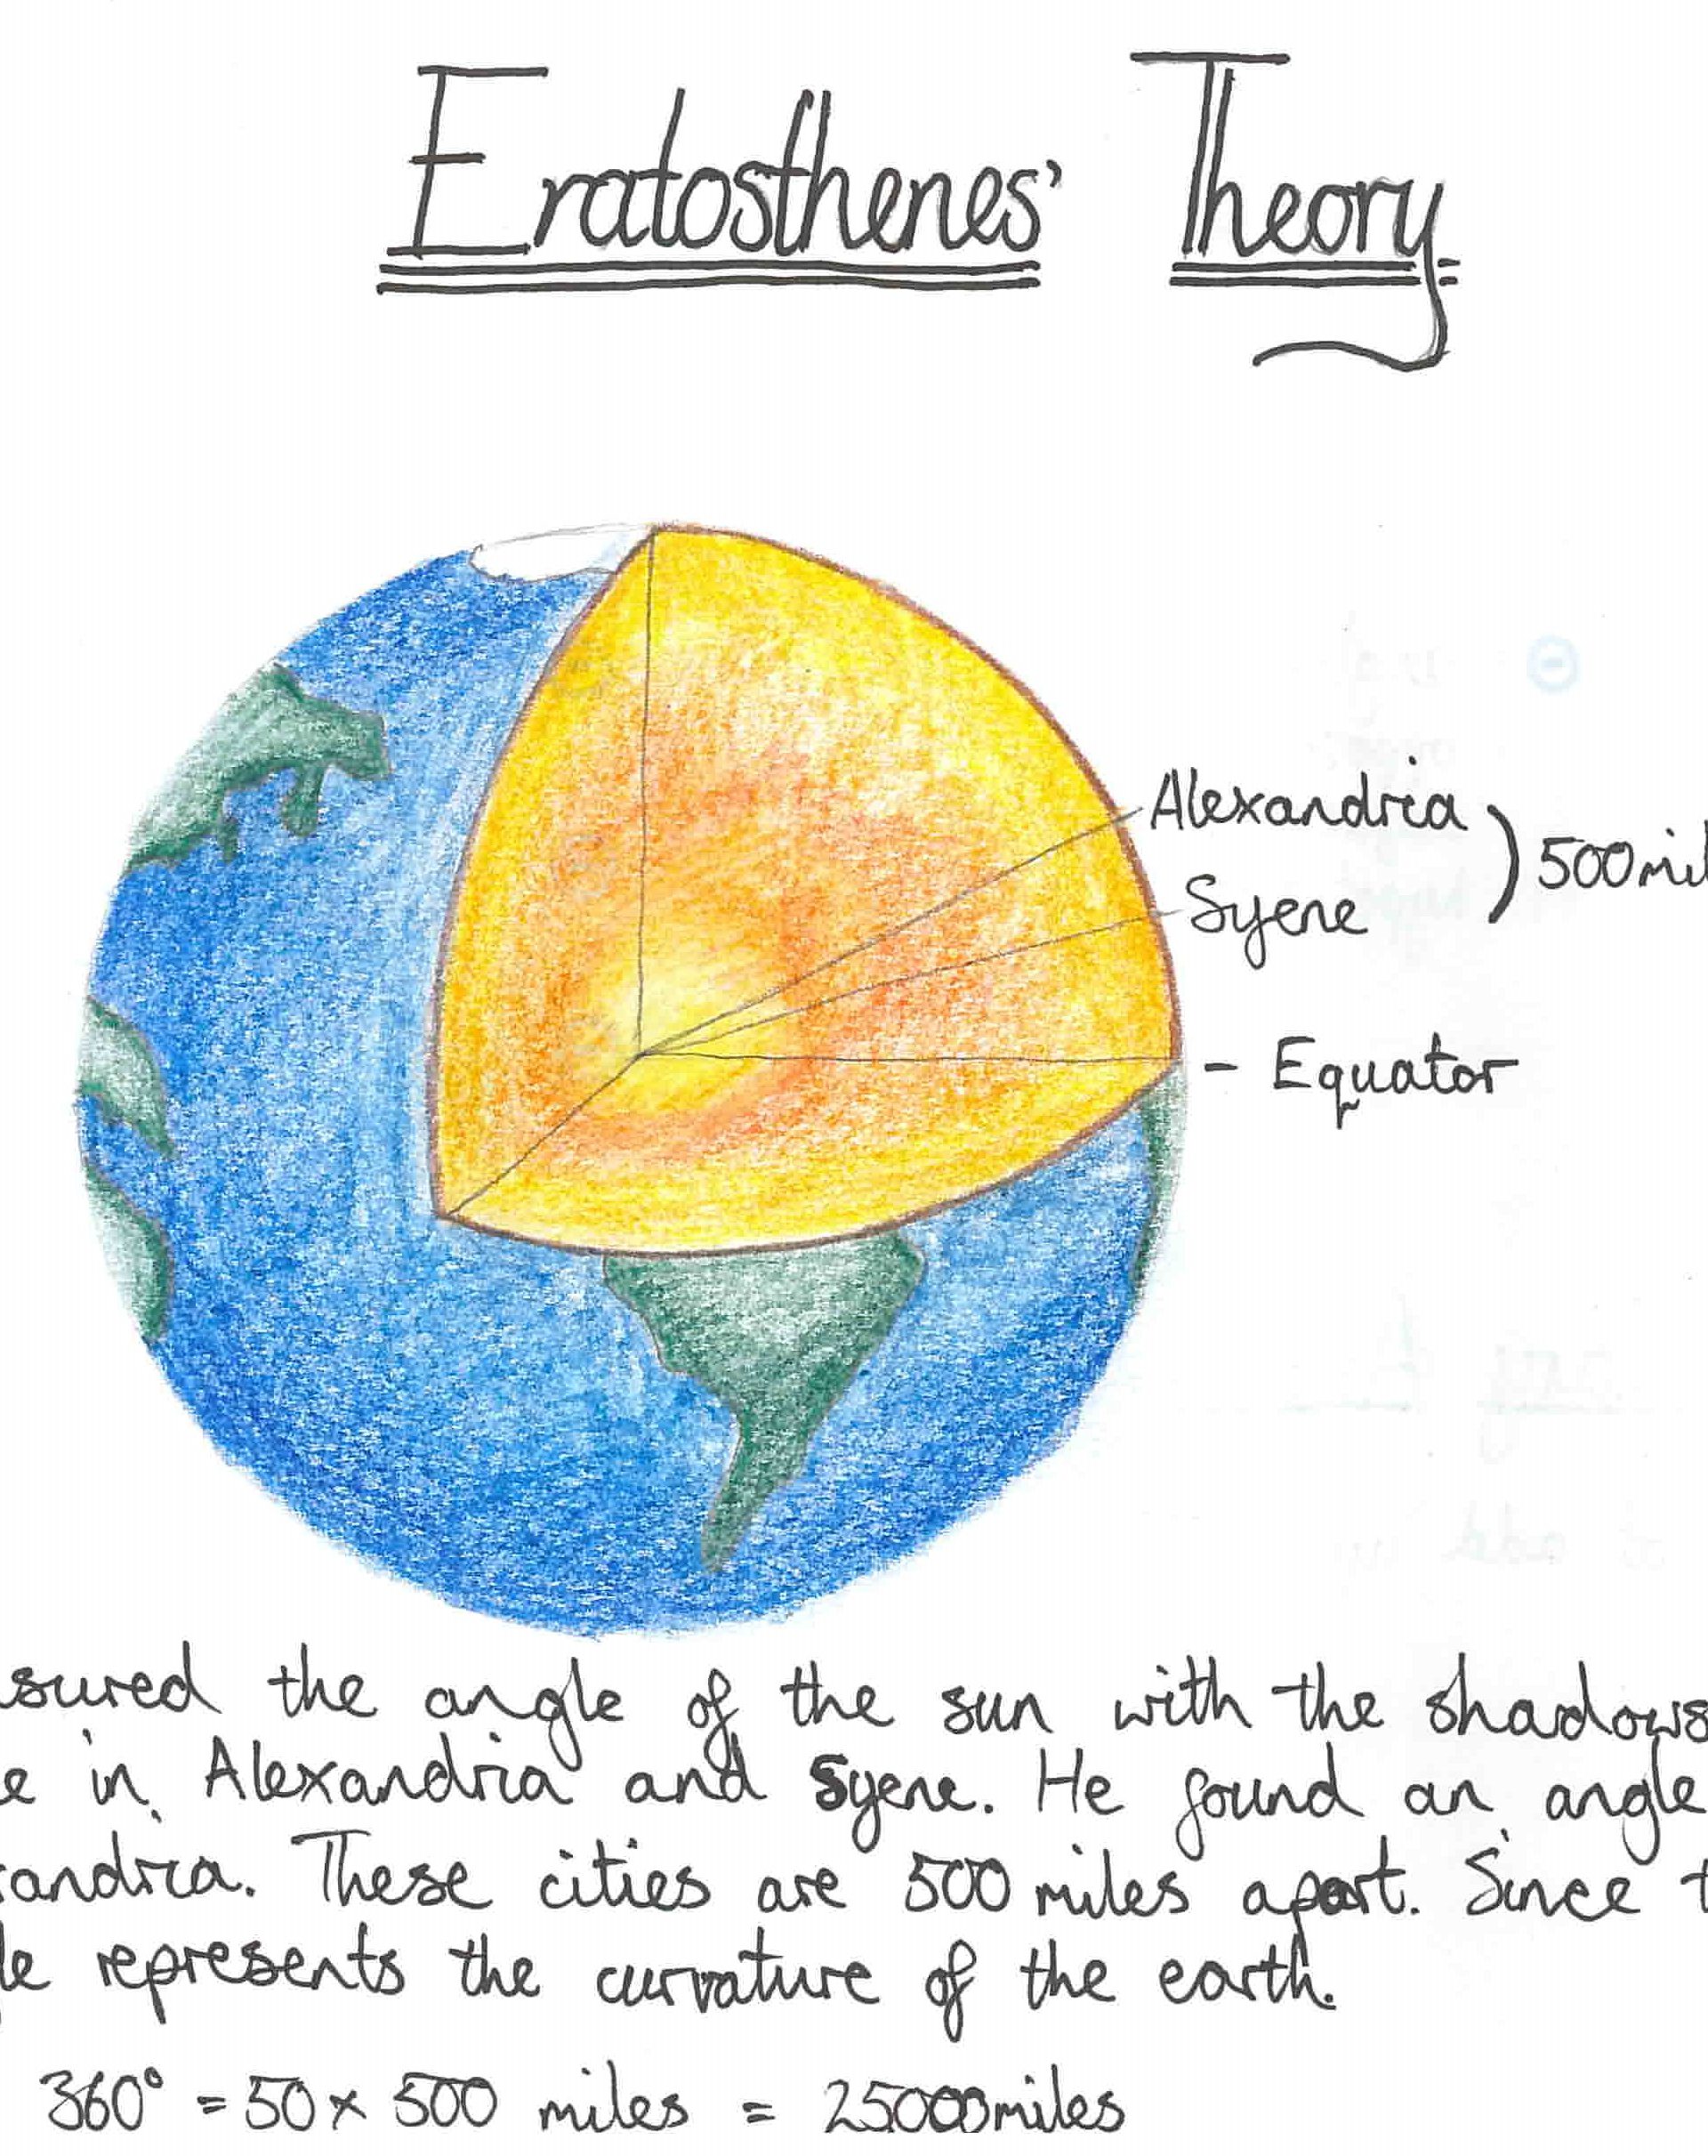 Eratosthenes' Theory
Alexandria
500mil
Syene
- Equator
sured the angle of the sun with the shadows
e in Alexandria and Syene. He found an angle
andria. These cities are 500 miles apart. Since t
le represents the curvature of the earth.
360° = 50 x 500 miles = 25000miles